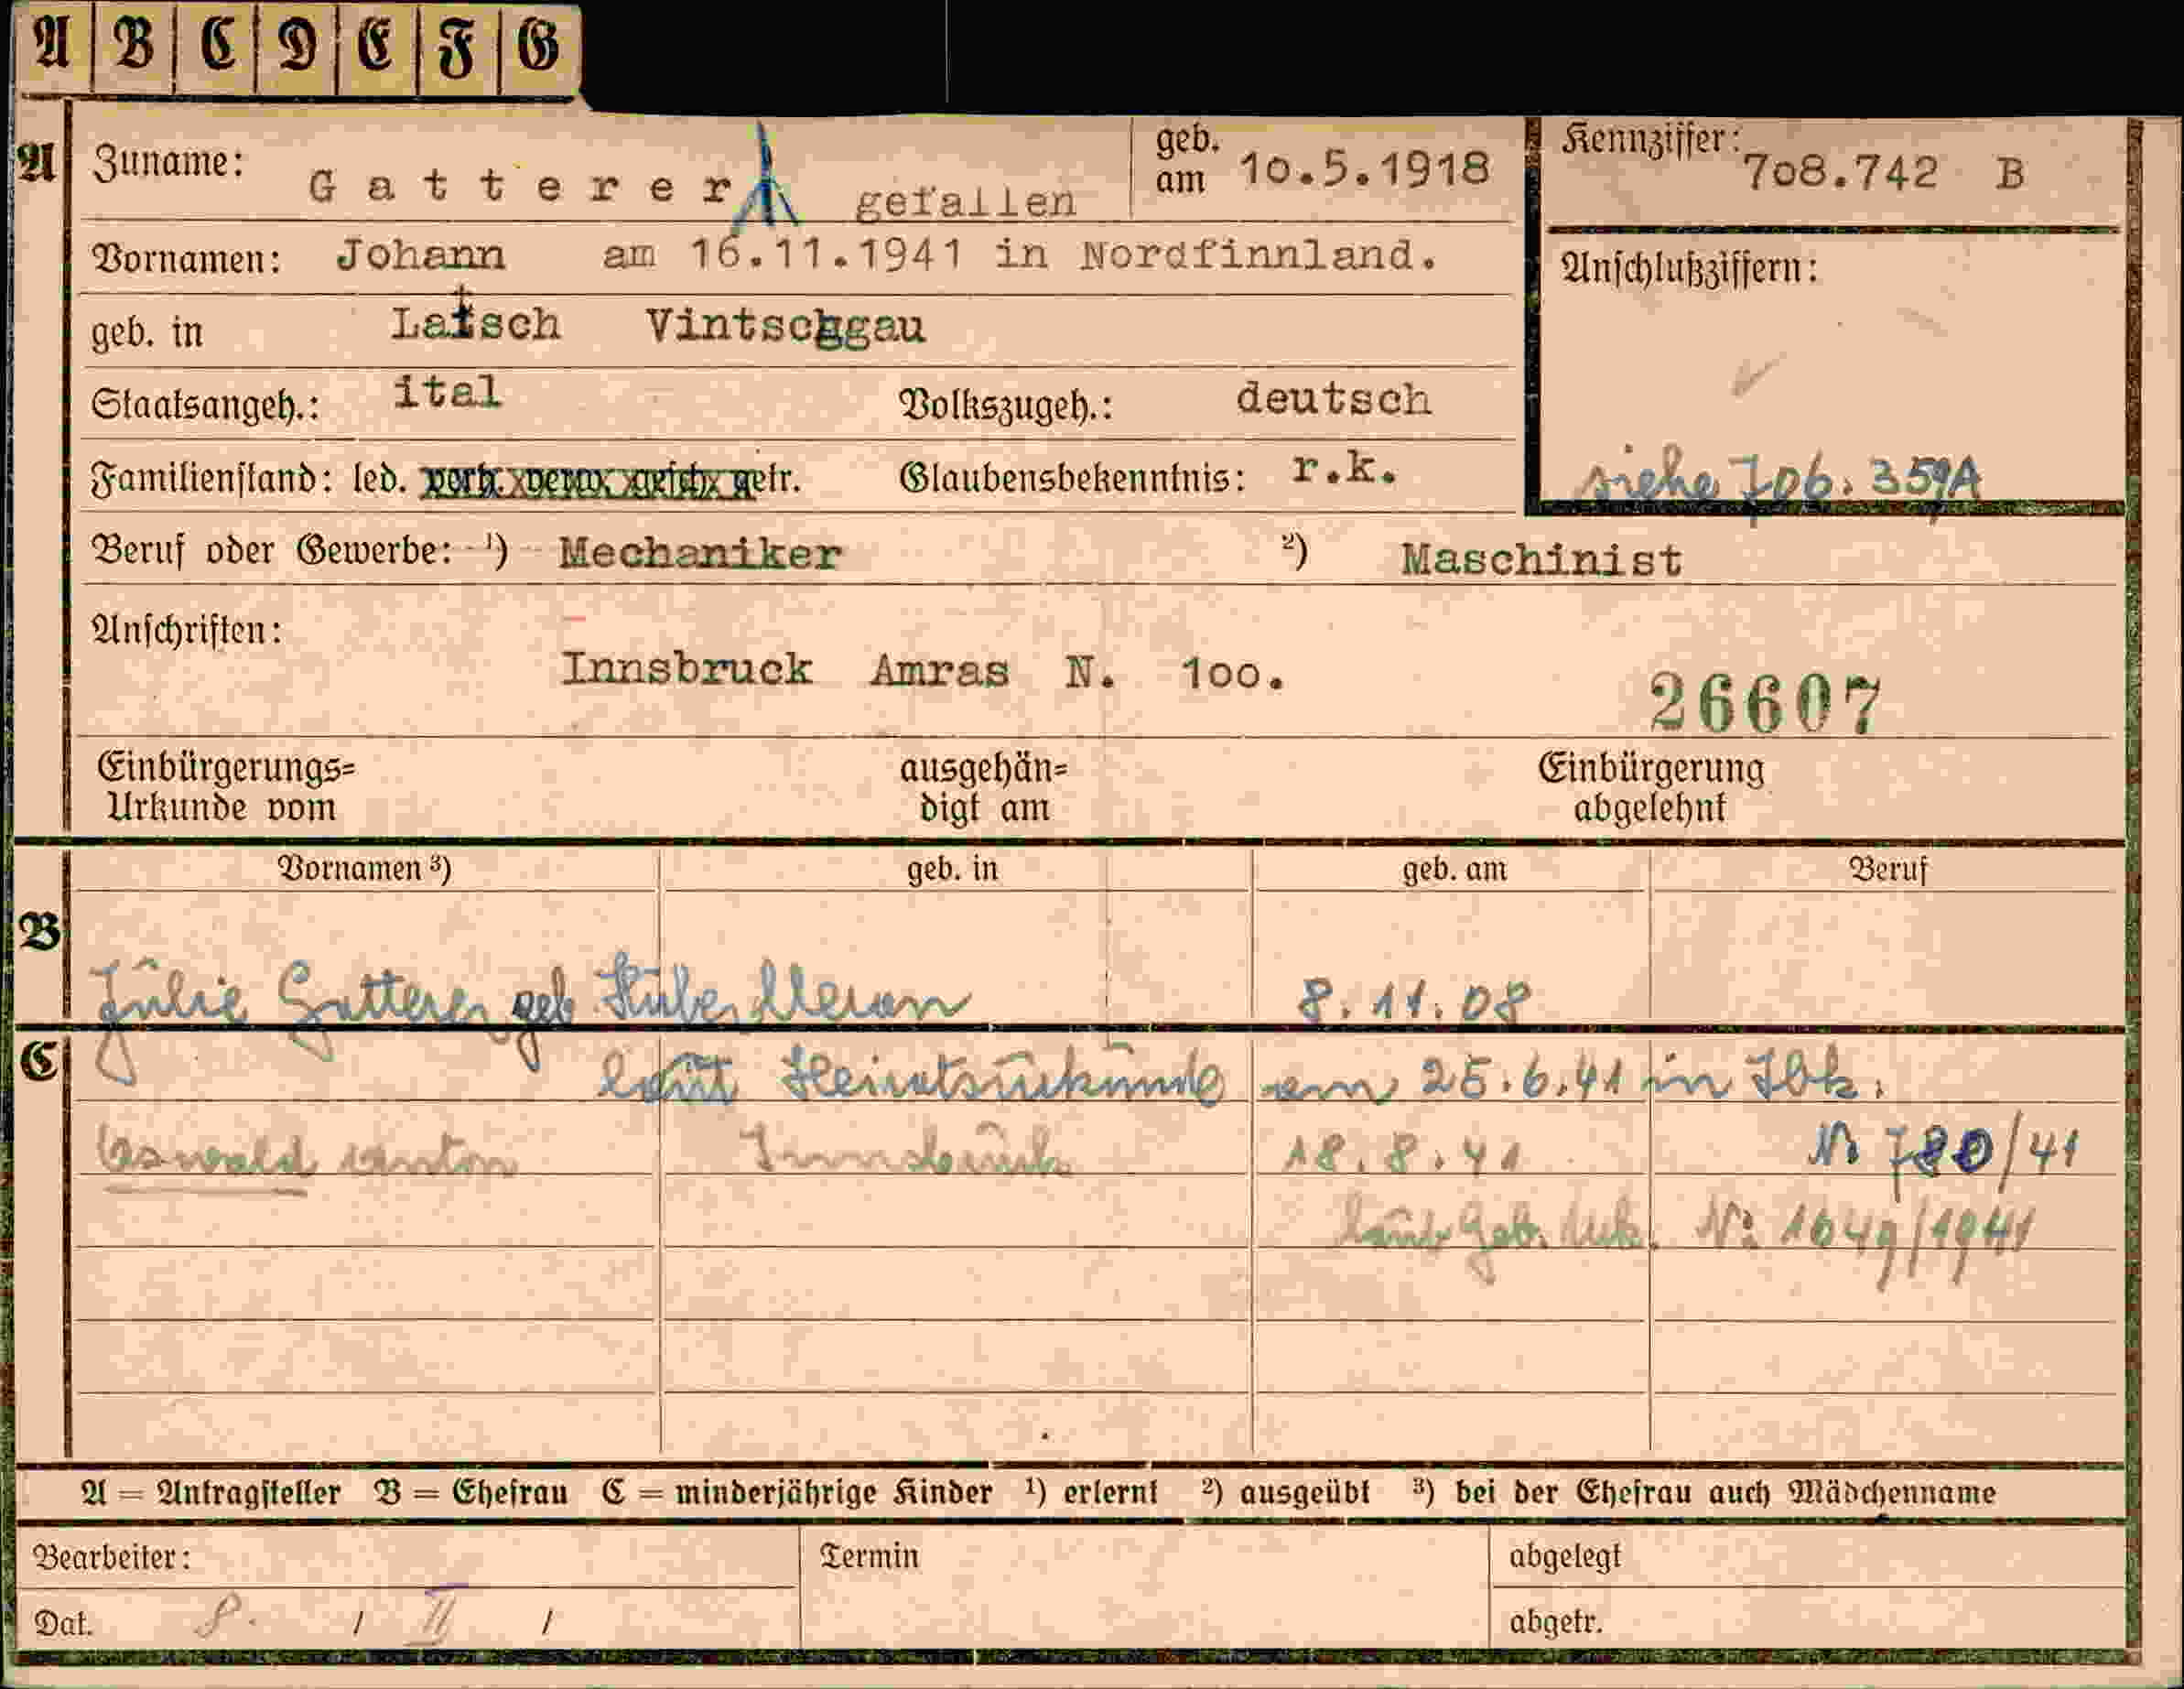 A B C D E F G
A Zuname: Gatterer gefallen geb. am 10.5.1918 Kennziffer: 708.742 B
Vornamen: Johann am 16.11.1941 in Nordfinnland. Anschlußziffern:
geb. in Latsch Vintschgau
Staatsangeh.: ital Volkszugeh.: deutsch
Familienstand: led. verh. verw. gesch. getr. Glaubensbekenntnis: r.k. siehe 706.359A
Beruf oder Gewerbe: ¹) Mechaniker ²) Maschinist
Anschriften:
Innsbruck Amras N. 100. 26607
Einbürgerungs= ausgehän= Einbürgerung
Urkunde vom digt am abgelehnt
Vornamen ³) geb. in geb. am Beruf
B
Julie Gatterer geb Huber Meran 8.11.08
C laut Heiratsurkunde am 25.6.41 in Ibk.
Oswald Anton Innsbruck 18.8.41 Nr 780/41
laut Geb. Urk. Nr 1649/1941
A = Antragsteller B = Ehefrau C = minderjährige Kinder ¹) erlernt ²) ausgeübt ³) bei der Ehefrau auch Mädchenname
Bearbeiter: Termin abgelegt
Dat. 8. / II / abgetr.